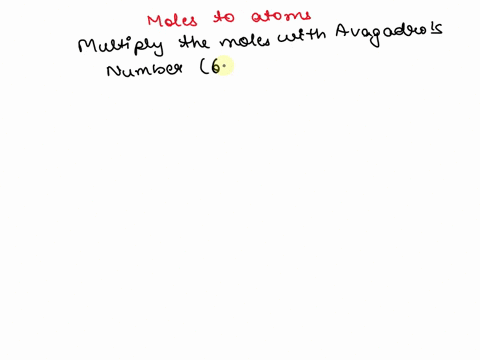 Moles to atoms
Multiply the moles with Avagadro's
Number (6.